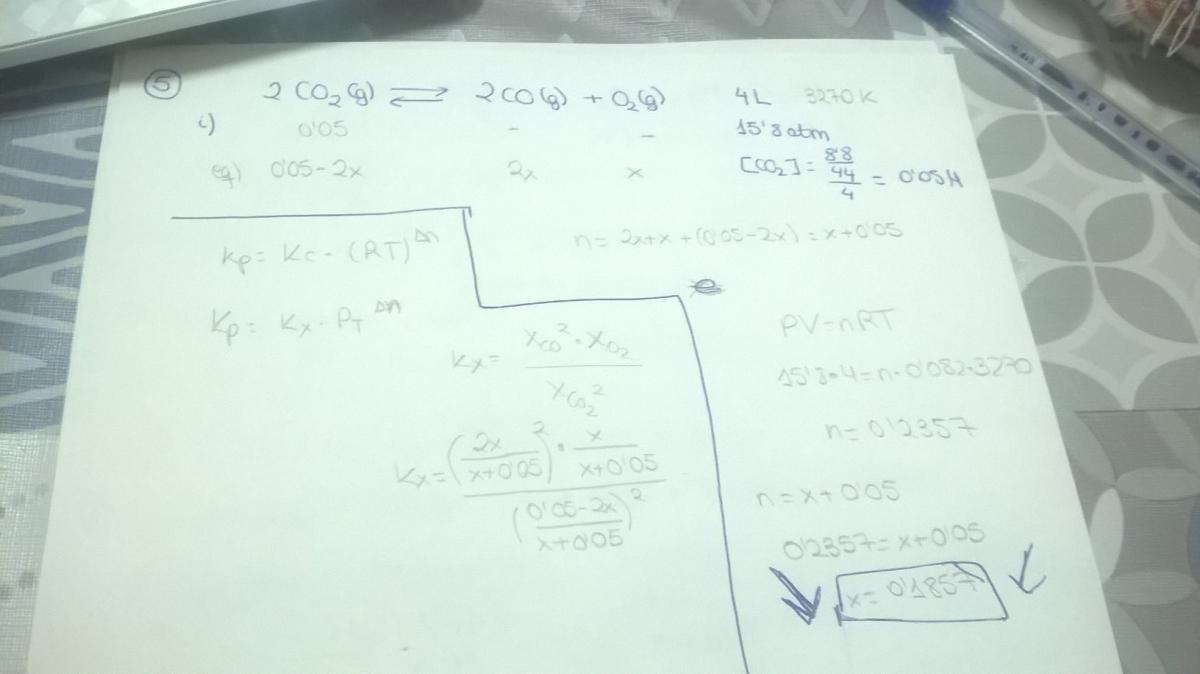 5 2 CO₂(g) ⇌ 2CO(g) + O₂(g) 4L 3270K
i) 0'05 - - 15'8 atm
eq) 0'05-2x 2x x [CO₂] = 8'8/44/4 = 0'05M
n = 2x+x+(0'05-2x) = x+0'05
Kp = Kc · (RT)^Δn
Kp = Kx · P_T^Δn
Kx = x_CO² · x_O₂ / x_CO₂²
Kx = (2x/x+0'05)² · x/x+0'05 / (0'05-2x/x+0'05)²
PV=nRT
15'8·4=n·0'082·3270
n=0'2357
n=x+0'05
0'2357=x+0'05
x=0'1857